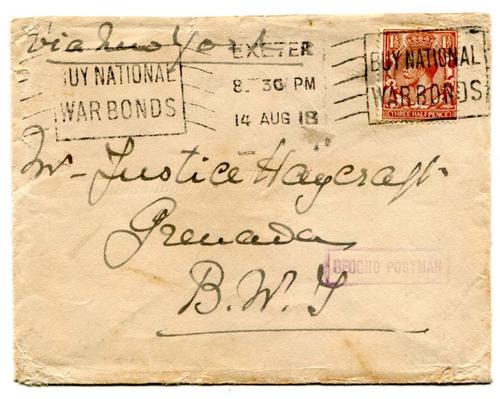 via New York
EXETER
8. 30 PM
14 AUG 18
BUY NATIONAL
WAR BONDS
BUY NATIONAL
WAR BONDS
THREE HALFPENCE
Mr Justice Haycraft
Grenada
B.W.I
SECOND POSTMAN